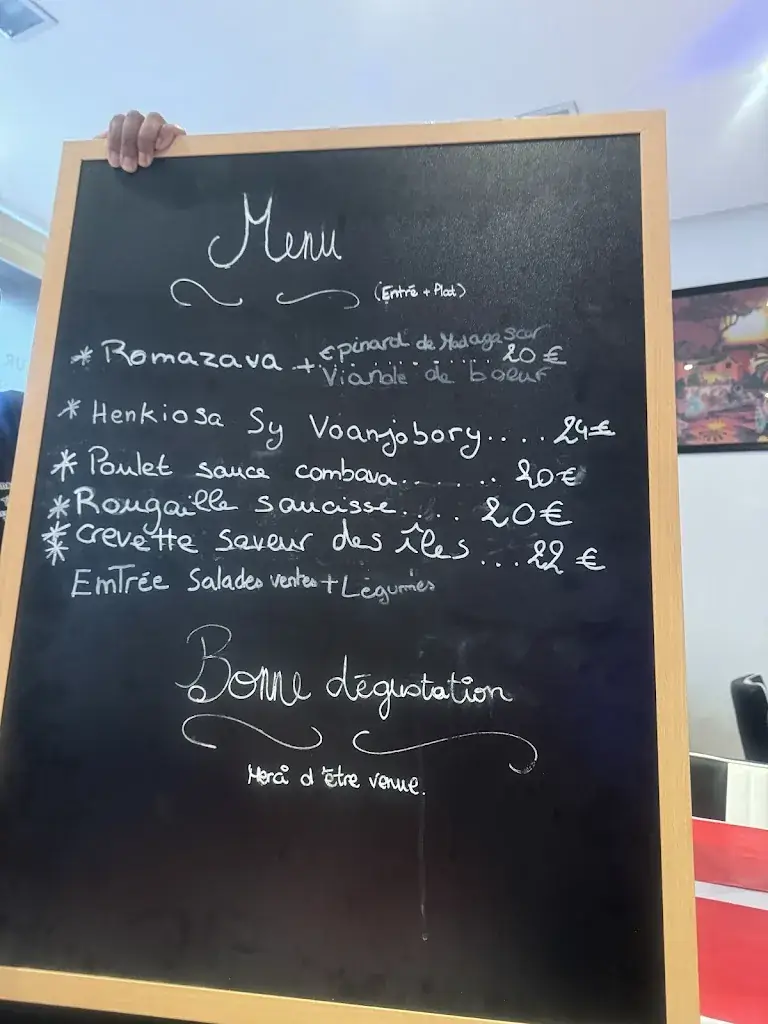 Menu
(Entré + Plat)
* Romazava + epinard de Madagascar ........ 20 €
Viande de boeuf
* Henkiosa Sy Voanjobory.... 24€
* Poulet sauce combava....... 20€
* Rougaille saucisse.... 20€
* Crevette saveur des îles ... 22 €
* EmTrée Salades vertes + Légumes
Bonne dégustation
Merci d'être venue.